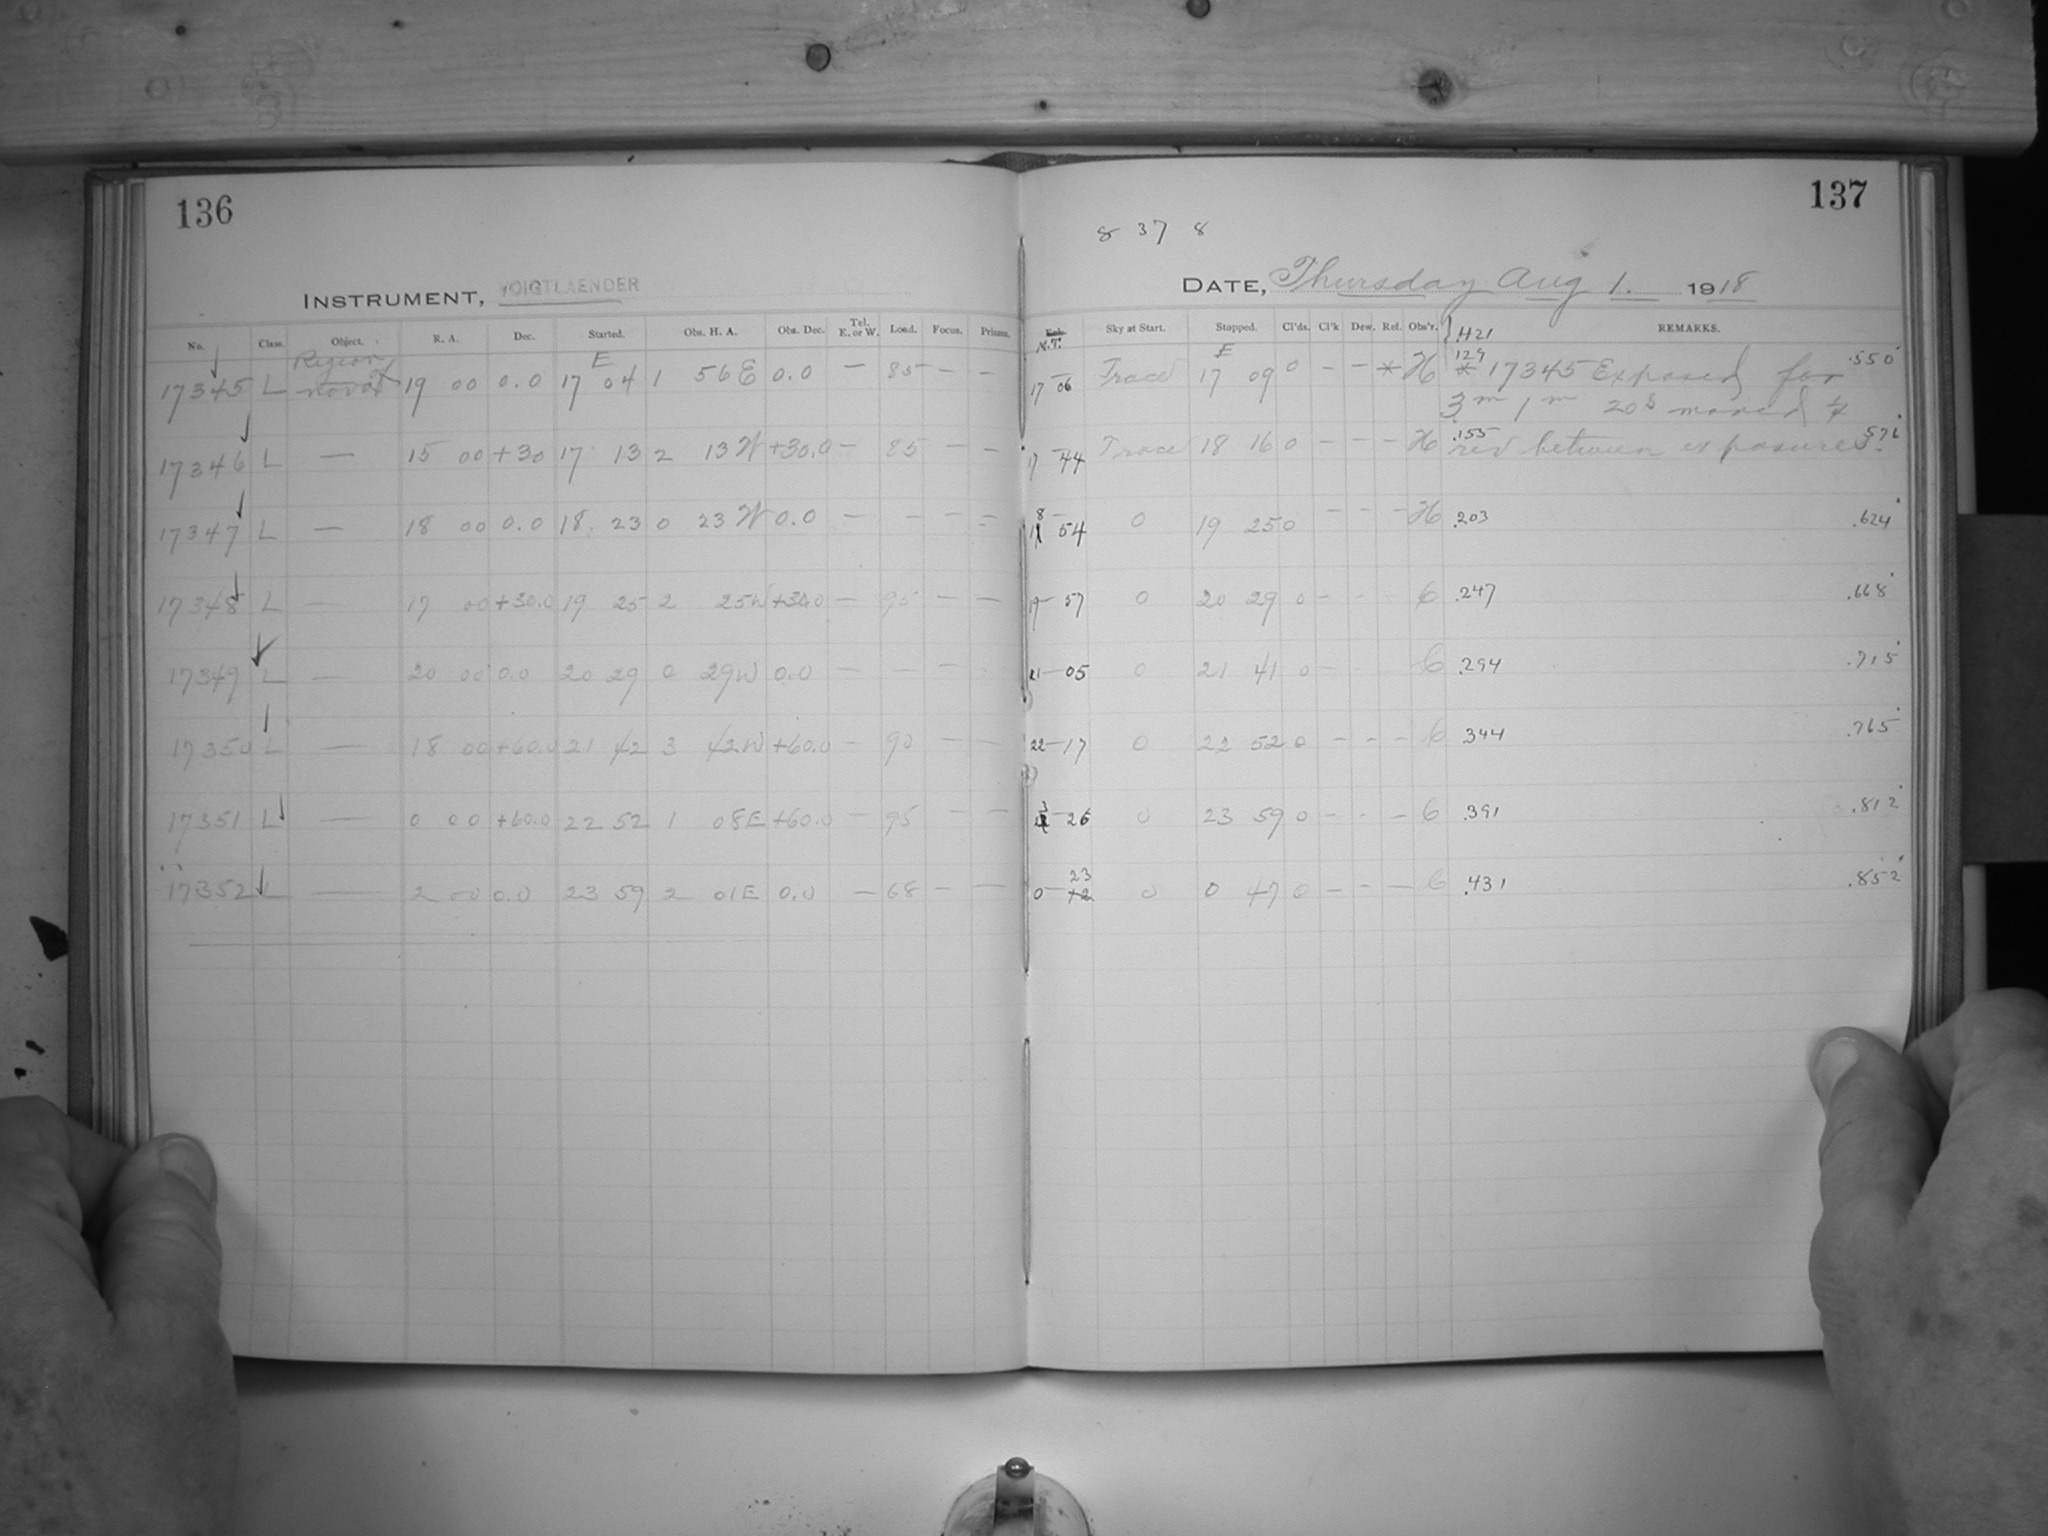 136
INSTRUMENT, VOIGTLAENDER
No. Class. Object. R. A. Dec. Started. Obs. H. A. Obs. Dec. Tel. E. or W. Load. Focus. Prisms.
Region of
E
17345 L 19 00 0.0 17 04 1 56 E 0.0 — 85 — —
17346 L — 15 00 +30 17 13 2 13 W +30.0 — 85 — —
17347 L — 18 00 0.0 18 23 0 23 W 0.0 — — — —
17348 L — 17 00 +30.0 19 25 2 25 W +30.0 — 95 — —
17349 L — 20 00 0.0 20 29 0 29 W 0.0 — — — —
17350 L — 18 00 +60.0 21 42 3 42 W +60.0 — 90 — —
17351 L — 0 00 +60.0 22 52 1 08 E +60.0 — 95 — —
17352 L — 2 00 0.0 23 59 2 01 E 0.0 — 68 — —
137
8 37 8
DATE, Thursday Aug 1. 1918
M.T. Sky at Start. Stopped. Cl'ds. Cl'k Dew. Rel. Obs'r. REMARKS.
.421
E
129 .550
17 06 Trace 17 09 0 — — * H * 17345 Exposed for
3m 1m 20s moved 1/4
17 44 Trace 18 16 0 — — — H .155 rev between exposures. .576
18 54 0 19 25 0 — — — H .203 .624
19 57 0 20 29 0 — — — C .247 .668
21 05 0 21 41 0 — C .294 .715
22 17 0 22 52 0 — — — C .344 .765
23 26 0 23 59 0 — — — C .391 .812
0 23 0 0 47 0 — — — C .431 .852